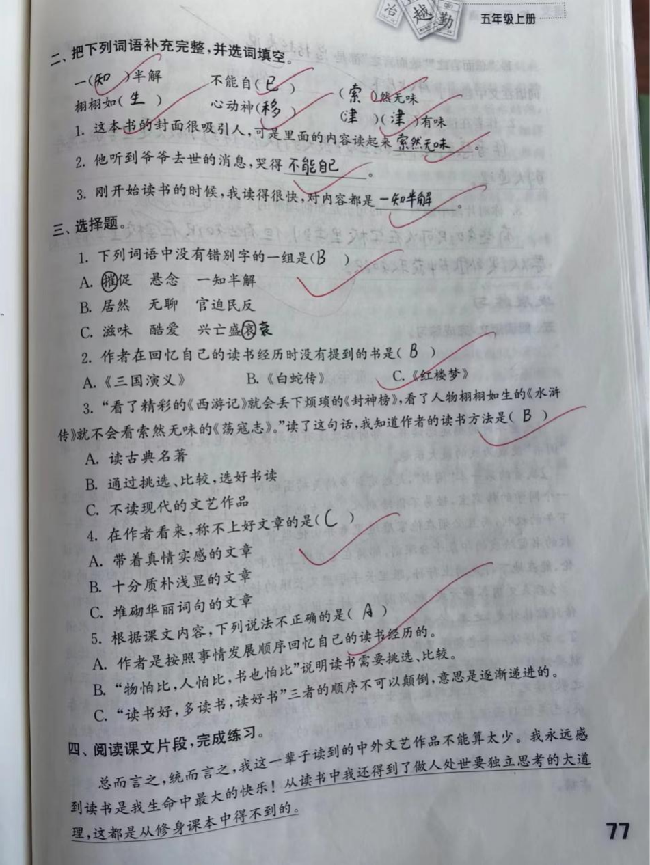 冶 越 勤
五年级上册
二、把下列词语补充完整,并选词填空。
一(知)半解 不能自(已) (索)然无味
栩栩如(生) 心动神(移) (津)(津)有味
1. 这本书的封面很吸引人,可是里面的内容读起来索然无味。
2. 他听到爷爷去世的消息,哭得不能自已。
3. 刚开始读书的时候,我读得很快,对内容都是一知半解。
三、选择题。
1. 下列词语中没有错别字的一组是(B)
A. 摧促 悬念 一知半解
B. 居然 无聊 官迫民反
C. 滋味 酷爱 兴亡盛哀 衰
2. 作者在回忆自己的读书经历时没有提到的书是(B)
A.《三国演义》 B.《白蛇传》 C.《红楼梦》
3. “看了精彩的《西游记》就会丢下烦琐的《封神榜》,看了人物栩栩如生的《水浒
传》就不会看索然无味的《荡寇志》。”读了这句话,我知道作者的读书方法是(B)
A. 读古典名著
B. 通过挑选、比较,选好书读
C. 不读现代的文艺作品
4. 在作者看来,称不上好文章的是(C)
A. 带着真情实感的文章
B. 十分质朴浅显的文章
C. 堆砌华丽词句的文章
5. 根据课文内容,下列说法不正确的是(A)
A. 作者是按照事情发展顺序回忆自己的读书经历的。
B. “物怕比,人怕比,书也怕比”说明读书需要挑选、比较。
C. “读书好,多读书,读好书”三者的顺序不可以颠倒,意思是逐渐递进的。
四、阅读课文片段,完成练习。
总而言之,统而言之,我这一辈子读到的中外文艺作品不能算太少。我永远感
到读书是我生命中最大的快乐!从读书中我还得到了做人处世要独立思考的大道
理,这都是从修身课本中得不到的。
77